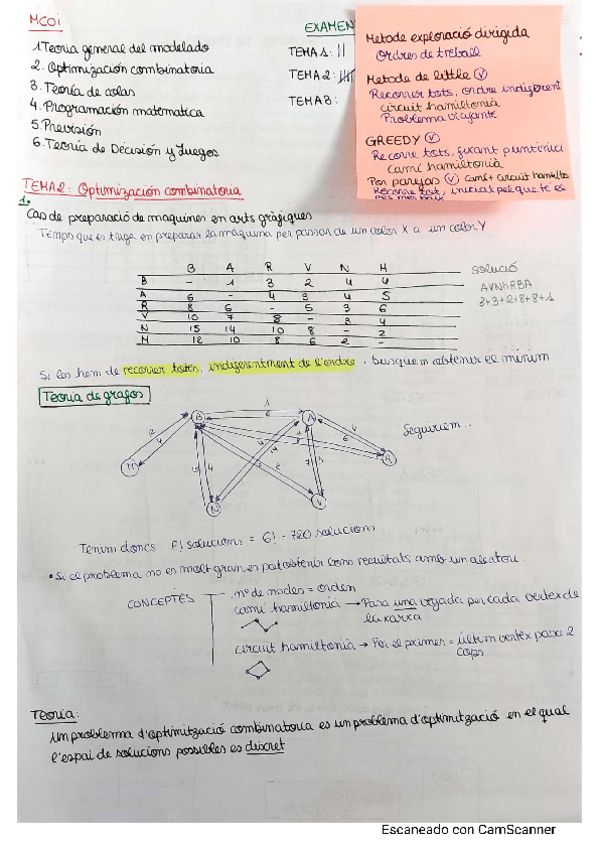 MCOI
1. Teoria general del modelado
2. Optimización combinatoria
3. Teoría de colas
4. Programación matematica
5. Previsión
6. Teoría de Decisión y Juegos
EXAMEN
TEMA 1: ||
TEMA 2:
TEMA 3:
Metode exploració dirigida
Ordres de treball
Metode de little V
Recorrer tots, ordre indiferent
circuit hamiltonià
Problema viajante
GREEDY V
Recorre tots, fixant punt inici
Camí hamiltonià
Por parejas V Camí + circuit hamilto
Recorre tots,
TEMA 2: Optimización combinatoria
1.
Cas de preparació de maquines en arts gràfiques
Temps que es triga en preparar la màquina per passar de un color X a un color Y
B A R V N M
B - 1 3 2 4 4
A 6 - 4 3 4 5
R 8 6 - 5 3 6
V 10 7 8 - 3 4
N 15 14 10 8 - 2
M 12 10 8 6 2 -
solució
3+3+2+8+8+1
Si les hem de recorrer totes, indiferentment de l'ordre i busquem obtenir el mínim
Teoria de grafos
Seguiriem...
Tenim doncs F! solucions = 6! = 720 solucions
• Si el problema no es molt gran, es pot obtenir bons resultats amb un
CONCEPTES
nº de nodes = orden
camí hamiltonià → Pasa una vegada per cada vertex de
la xarxa
circuit hamiltonià → Per el primer = últim vertex pasa 2
cops
Teoria:
un problema d'optimització combinatoria es un problema d'optimització en el qual
l'espai de solucions possibles es discret
Escaneado con CamScanner